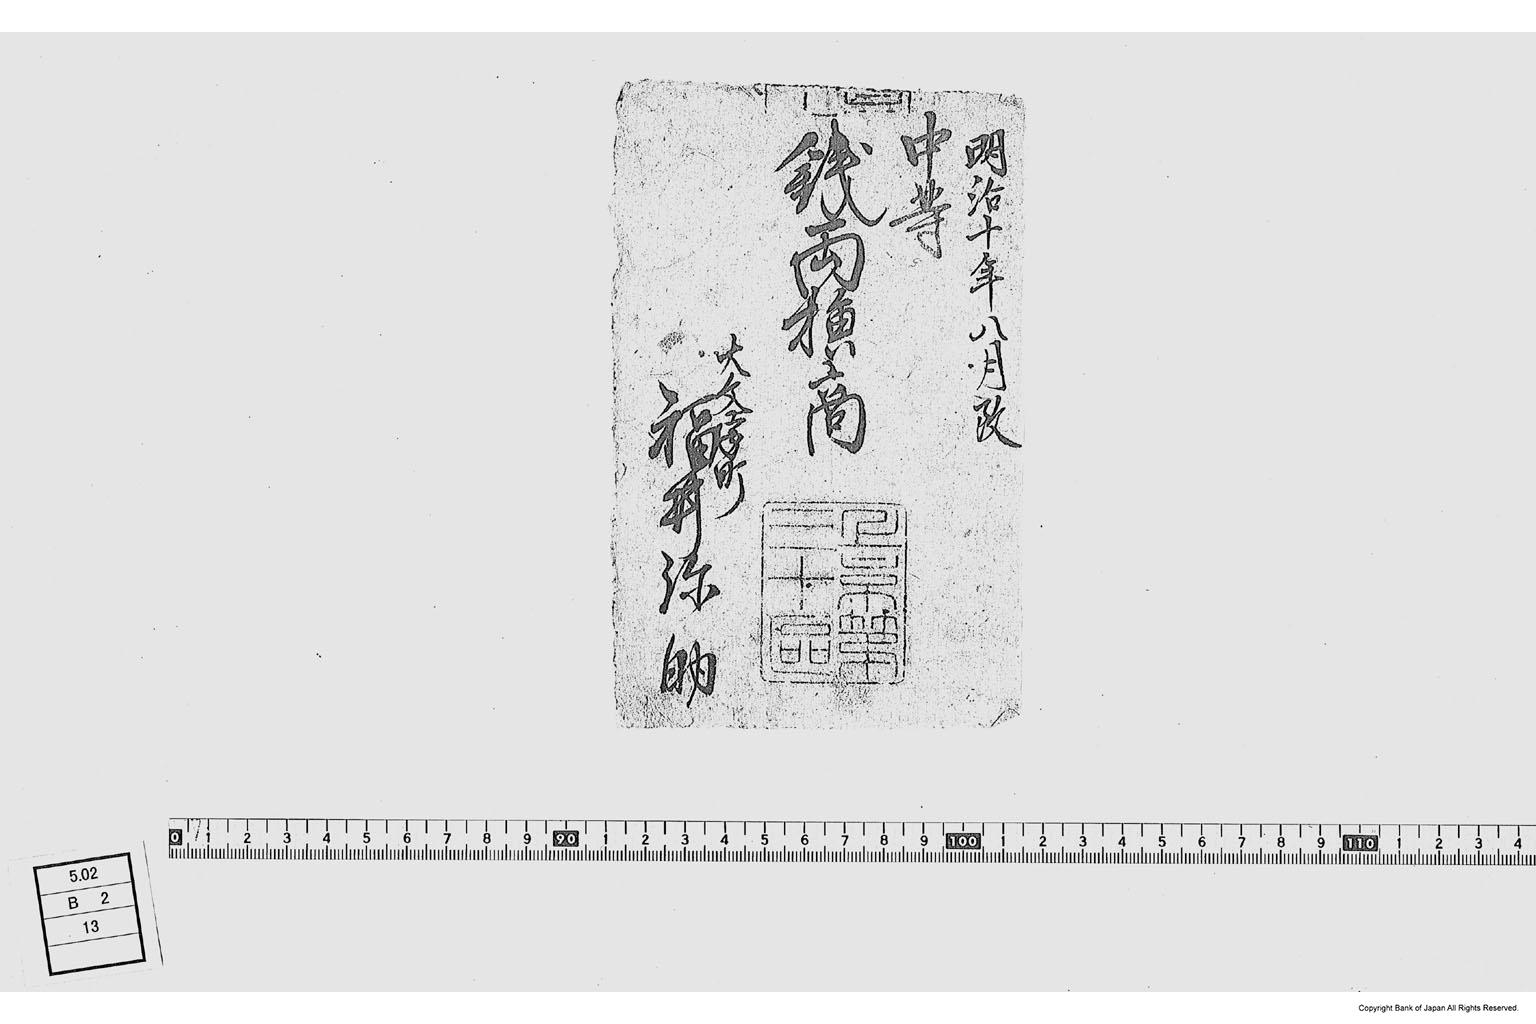 明治十年八月改
中等
銭両換商
大文字町
福井弥助
三十區
0 1 2 3 4 5 6 7 8 9 90 1 2 3 4 5 6 7 8 9 100 1 2 3 4 5 6 7 8 9 110 1 2 3 4
5.02
B 2
13
Copyright Bank of Japan All Rights Reserved.